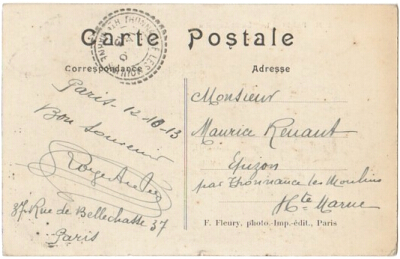 Carte Postale
Correspondance
Adresse
Paris - 12-10-13
Bon Souvenir
37. Rue de Bellechasse 37
Paris
Monsieur
Maurice Renaut
Epizon
par Thonnance les Moulins
Hte Marne
F. Fleury, photo.-Imp.-édit., Paris